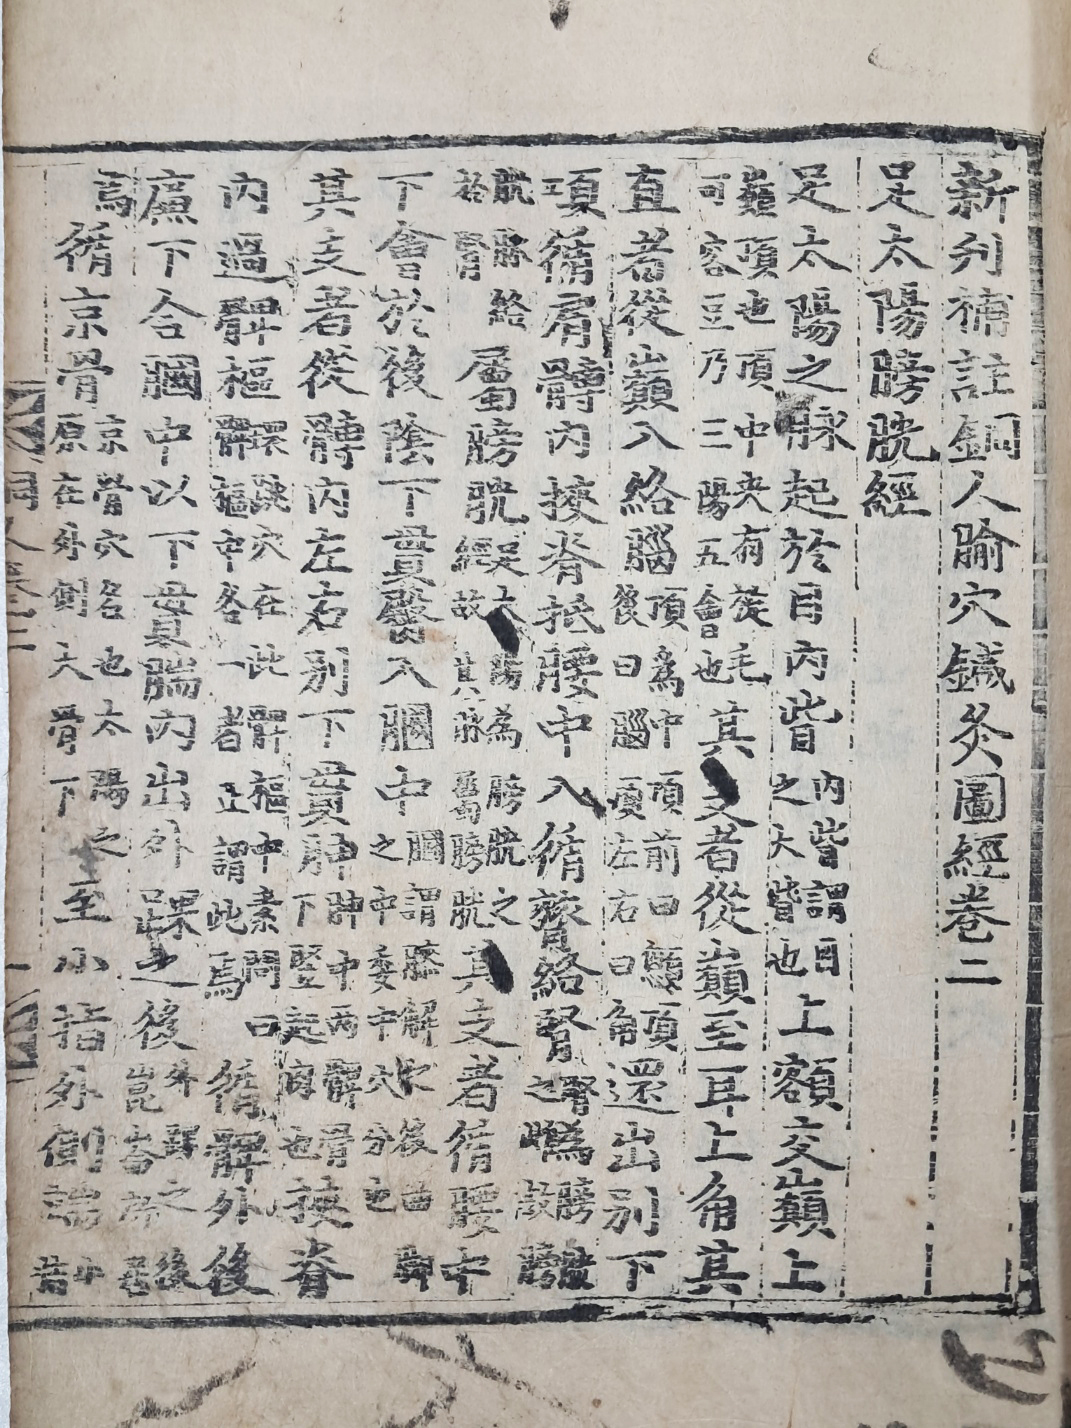 新刋補註銅人腧穴鍼灸圖經卷二
足太陽膀胱經
足太陽之脉起於目内眥内眥謂目之大眥也上額交巔上
巔頂也頂中央有旋毛可容豆乃三陽五會也其支者從巔至耳上角其
直者從巔入絡腦頂爲中項前曰顖頂後曰腦項左右曰角還出别下
項循肩髆内挾脊抵腰中入循膂絡腎腎爲膀
胱脉絡屬膀胱足太陽爲膀胱之經故其脉屬膀胱其支者循腰中
下會於後陰下貫臀入膕中膕謂膝解後曲之中委中穴分也
其支者從髆内左右别下貫胂胂中兩髀骨下竪起肉也挾脊
内過髀樞環跳穴在此髀樞中素問曰髀樞中各一者正謂此焉循髀外後
廉下合膕中以下貫腨内出外踝之後外踝之後
焉循京骨京骨穴名也太陽之原在外側大骨下至小指外側端